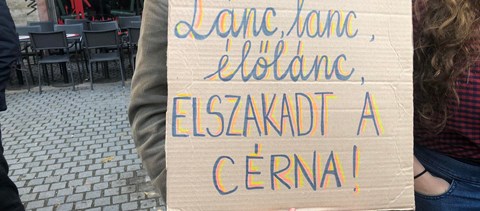 Lánc, lánc,
élőlánc,
ELSZAKADT A
CÉRNA!